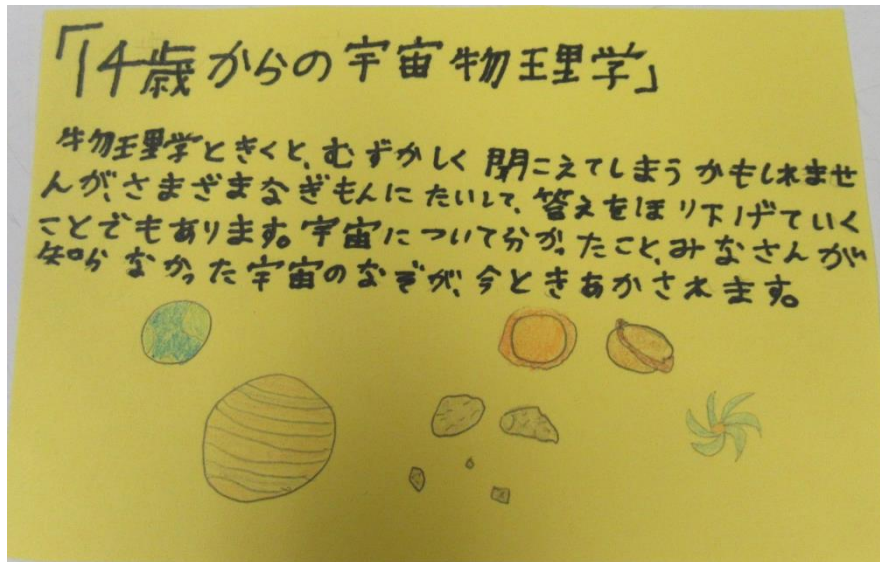 「14歳からの宇宙物理学」
物理学ときくと、むずかしく聞こえてしまうかもしれませ
んが、さまざまなぎもんにたいして、答えをほり下げていく
ことでもあります。宇宙について分かったこと、みなさんが
知らなかった宇宙のなぞが、今ときあかされます。